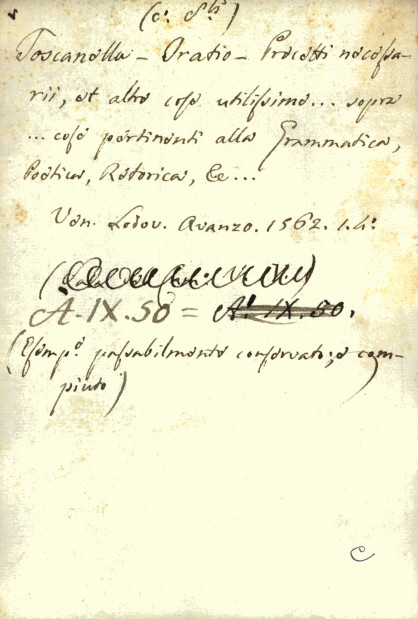 (c. 8ti)
Toscanella - Oratio - Precetti necessa-
rii, et altre cose utilissime... sopra
... cose pertinenti alla Grammatica,
Poetica, Retorica, &c...
Ven. Lodov. Avanzo. 1562. i.4.°
A.IX.50 = A. IX. 50.
(Esemp.e passabilmente conservato; e com-
piuto)
C